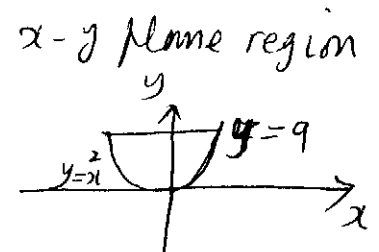 x-y plane region
y
y=x²
y=9
x